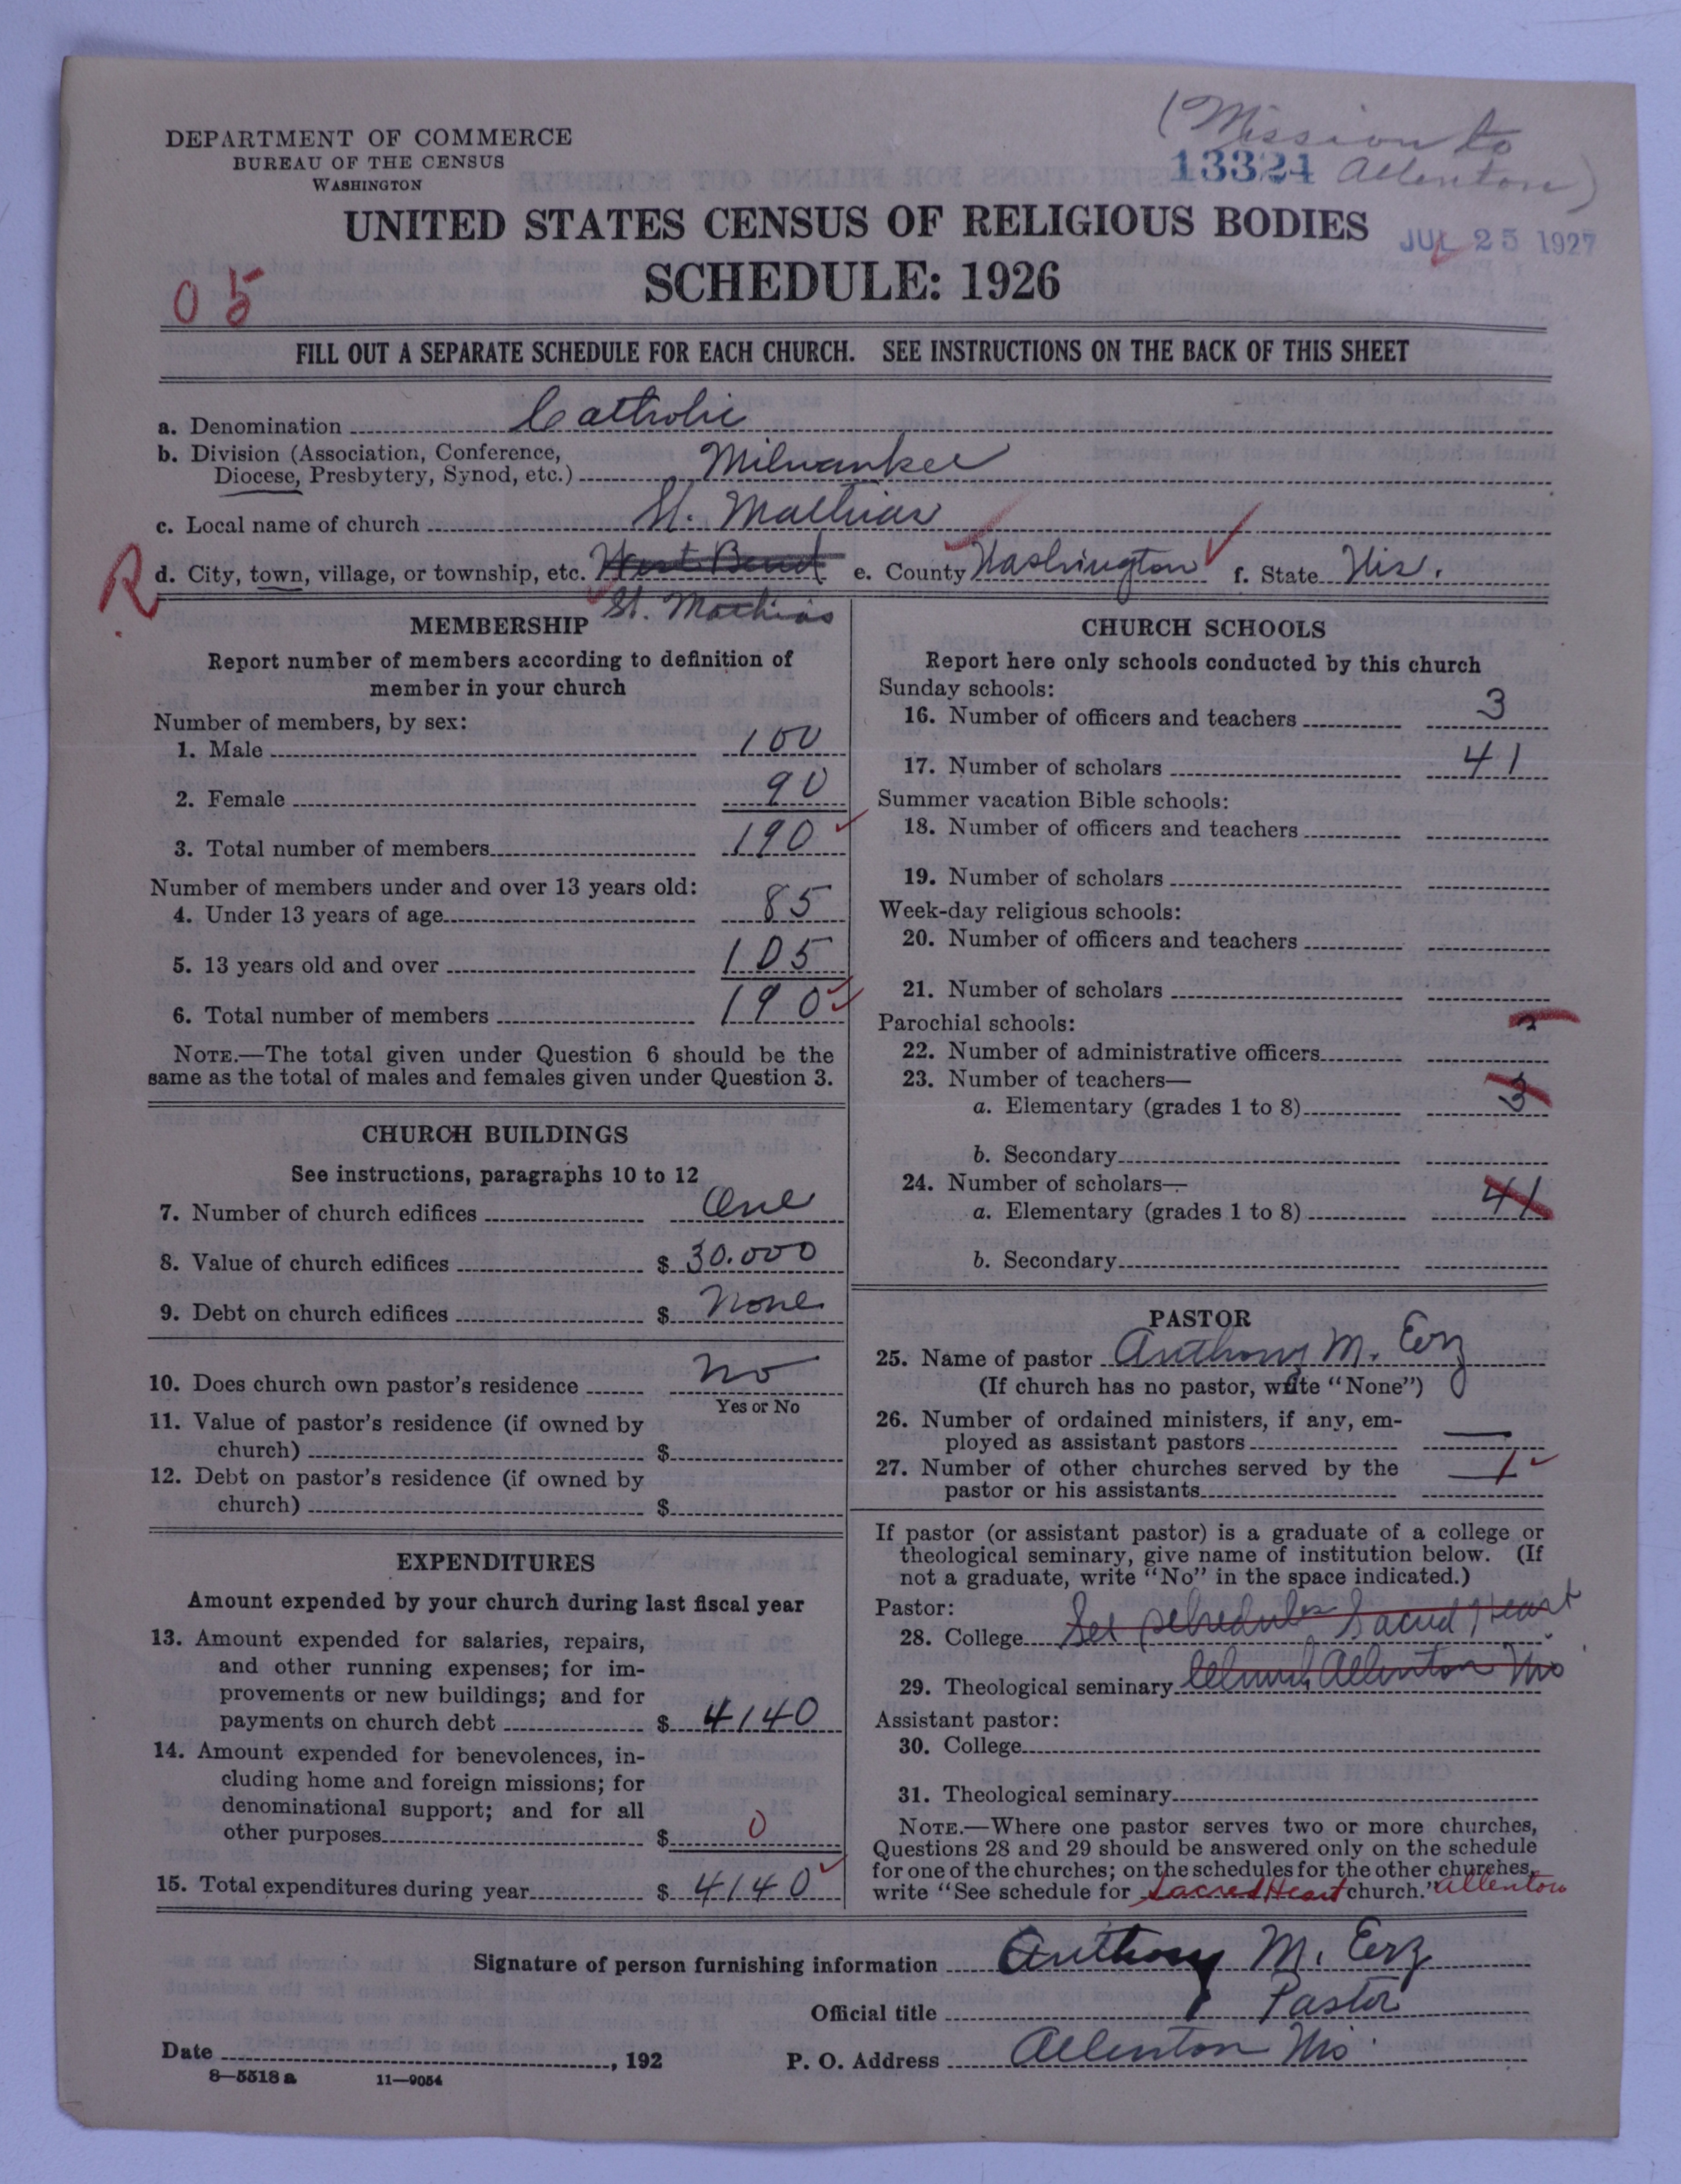 (Mission to
DEPARTMENT OF COMMERCE
BUREAU OF THE CENSUS
WASHINGTON
13324 Allenton)
UNITED STATES CENSUS OF RELIGIOUS BODIES
JUL 25 1927
SCHEDULE: 1926
05
FILL OUT A SEPARATE SCHEDULE FOR EACH CHURCH. SEE INSTRUCTIONS ON THE BACK OF THIS SHEET
a. Denomination Catholic
b. Division (Association, Conference,
Diocese, Presbytery, Synod, etc.) Milwaukee
c. Local name of church St. Mathias
R
d. City, town, village, or township, etc. West Bend e. County Washington f. State Wis.
St. Mathias
MEMBERSHIP
Report number of members according to definition of
member in your church
Number of members, by sex:
1. Male 100
2. Female 90
3. Total number of members 190
Number of members under and over 13 years old:
4. Under 13 years of age 85
5. 13 years old and over 105
6. Total number of members 190
NOTE.—The total given under Question 6 should be the
same as the total of males and females given under Question 3.
CHURCH BUILDINGS
See instructions, paragraphs 10 to 12
7. Number of church edifices One
8. Value of church edifices $ 30.000
9. Debt on church edifices $ None
10. Does church own pastor's residence No
Yes or No
11. Value of pastor's residence (if owned by
church) $
12. Debt on pastor's residence (if owned by
church) $
EXPENDITURES
Amount expended by your church during last fiscal year
13. Amount expended for salaries, repairs,
and other running expenses; for im-
provements or new buildings; and for
payments on church debt $ 4140
14. Amount expended for benevolences, in-
cluding home and foreign missions; for
denominational support; and for all
other purposes $ 0
15. Total expenditures during year $ 4140
CHURCH SCHOOLS
Report here only schools conducted by this church
Sunday schools:
16. Number of officers and teachers 3
17. Number of scholars 41
Summer vacation Bible schools:
18. Number of officers and teachers
19. Number of scholars
Week-day religious schools:
20. Number of officers and teachers
21. Number of scholars
Parochial schools:
22. Number of administrative officers
23. Number of teachers—
a. Elementary (grades 1 to 8) 3
b. Secondary
24. Number of scholars—
a. Elementary (grades 1 to 8) 41
b. Secondary
PASTOR
25. Name of pastor Anthony M. Erz
(If church has no pastor, write "None")
26. Number of ordained ministers, if any, em-
ployed as assistant pastors —
27. Number of other churches served by the
pastor or his assistants 1
If pastor (or assistant pastor) is a graduate of a college or
theological seminary, give name of institution below. (If
not a graduate, write "No" in the space indicated.)
Pastor:
28. College See schedule Sacred Heart
29. Theological seminary Church Allenton Wis
Assistant pastor:
30. College
31. Theological seminary
NOTE.—Where one pastor serves two or more churches,
Questions 28 and 29 should be answered only on the schedule
for one of the churches; on the schedules for the other churches,
write "See schedule for Sacred Heart church." Allenton
Signature of person furnishing information Anthony M. Erz
Official title Pastor
Date , 192
P. O. Address Allenton Wis
8—5518 a 11—9054